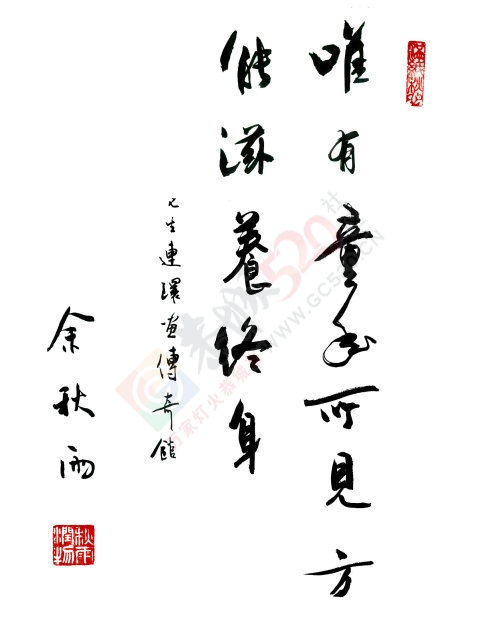 唯有童年所見方
能滋養終身
七生連環画傳奇館
余秋雨
秋雨潤物
520社